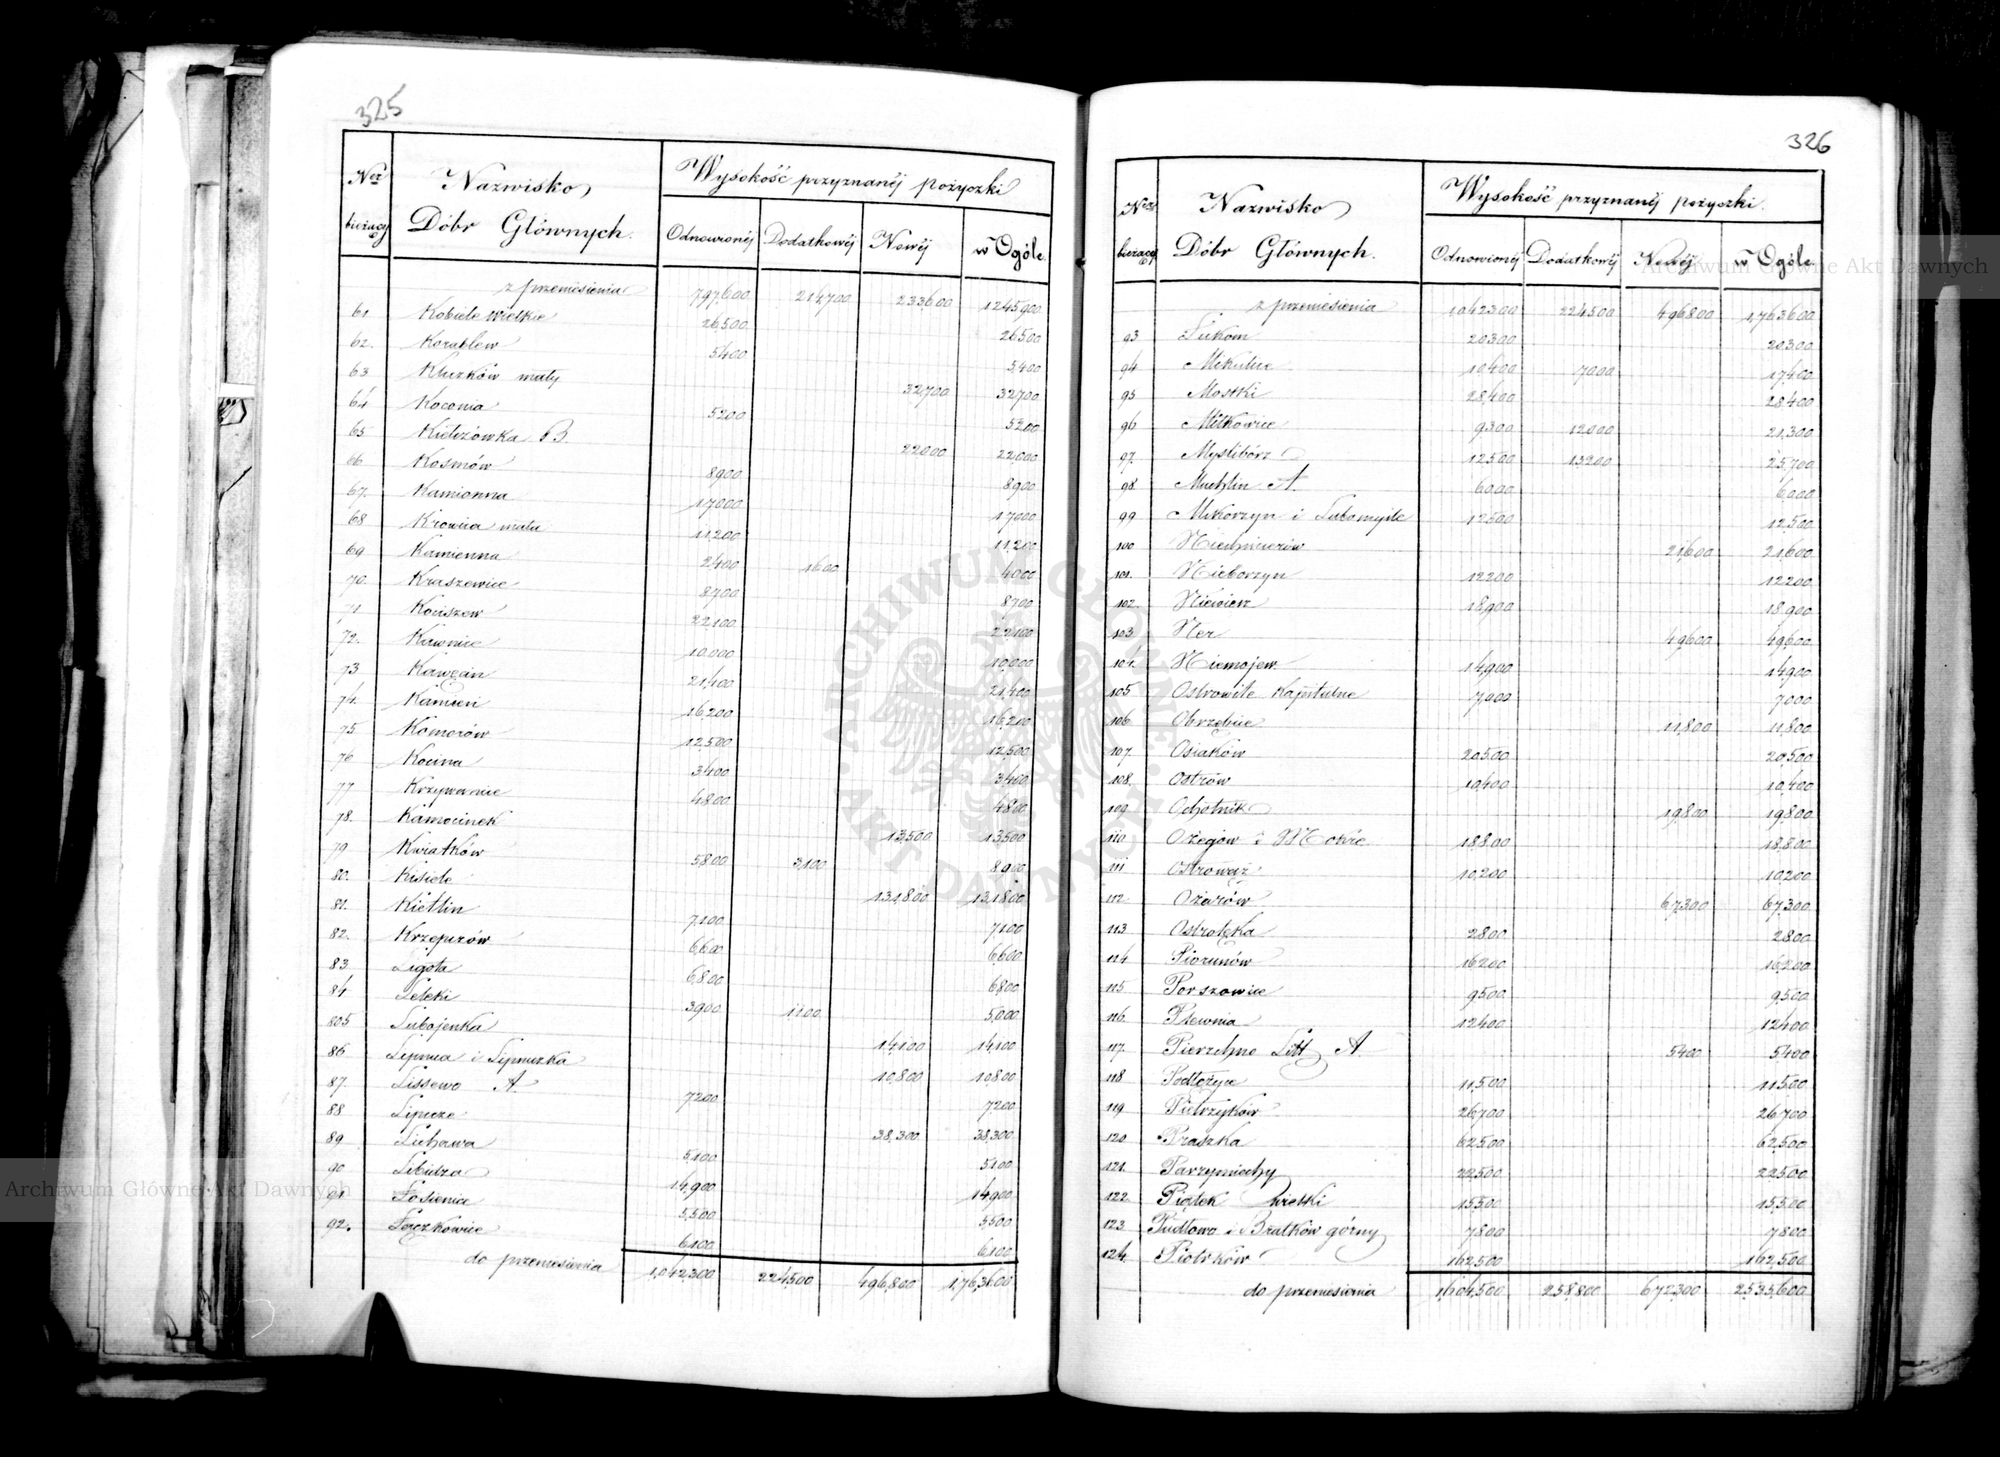 325
Ner bieżący
Nazwisko Dóbr Głównych.
Wysokość przyznanéj pożyczki
Odnowionéj Dodatkowéj Nowéj w Ogóle
z przeniesienia 797,600 214700 233600 1245,900
61 Kobiele wielkie 26,500 26500
62. Korablew 5400 5,400
63 Kluzków mały 32,700 32700
64 Koconia 5200 5200
65 Kiełczówka B. 22,000 22,000
66 Kosmów 8,900 8,900
67. Kamionna 17000 17000
68 Krowica mała 11,200 11,200
69 Kamienna 2400 1600 4000
70. Kraszewice 8700 8700
71 Kociszew 22,100 22100
72. Kawnice 10.000 10,000
73 Kawęczin 21,400 21,400
74. Kamień 16,200 16,200
75 Komorów 12,500 12,500
76 Kocina 3400 3400
77 Krzywanice 4800 4800
78. Kamocinek 13,500 13,500
79 Kwiatków 5800 3,100 8900
80. Kisiele 131,800 131800
81. Kietlin 7,100 7,100
82. Krzepczów 6,600 6,600
83. Ligota 6,800 6,800
84 Leleki 3900 1100 5,000
805 Lubojenka 14,100 14,100
86 Lipnica i Lipniczka 10,800 10,800
87. Lissewo A 7200 7200
88 Lipicze 38,300 38,300
89 Lichawa 5,100 5100
90 Libidza 14,900 14,900
91 Łosienice 5,500 5,500
92. Łęczkowice 6,100 6,100
do przeniesienia 1,042,300 224,500 496,800 1,763,600
326
Ner bieżący
Nazwisko Dóbr Głównych.
Wysokość przyznanéj pożyczki.
Odnowionéj Dodatkowéj Nowéj w Ogóle
z przeniesienia 1,042300 224500 496800 1,763600
93 Łukom 20300 20,300
94 Mikulice 10400 7000 17,400
95 Mostki 28,400 28400
96 Miłkowice 9300 12000 21,300
97. Myslibórz 12500 13200 25,700
98. Muchlin A. 6000 6000
99 Mikorzyn i Lubomyśle 12500 12,500
100 Niechmierów 21,600 21,600
101. Nieborzyn 12200 12200
102. Niewiesz 18,900 18,900
103. Ner 49600 49,600
104. Niemojew 14900 14900
105 Ostrowite Kapitulne 7,000 7000
106. Obrzębin 11,800 11,800
107. Osiaków 20500 20,500
108. Ostrów 10,400 10,400
109. Ochotnik 19,800 19800
110. Ożegów i Mokre 18,800 18,800
111 Ostrowąż 10,200 10,200
112. Ożarów 67,300 67,300
113 Ostrołęka 2800 2800
114. Piorunów 16200 16,200
115 Porszowice 9500 9,500
116. Plewnia 12400 12400
117. Pierzchno Litt A. 5400 5400
118 Podłożyce 11,500 11500
119 Pietrzyków 26,700 26,700
120. Praszka 62500 62,500
121. Parzymiechy 22,500 22500
122. Piątek wielki 15,500 15,500
123. Pudłowo i Bratków górny 7800 7800
124. Piotrków 162500 162,500
do przeniesienia 1,604,500 258,800 672300 2,535,600
Archiwum Główne Akt Dawnych
Archiwum Główne Akt Dawnych
ARCHIWUM GŁÓWNE AKT DAWNYCH